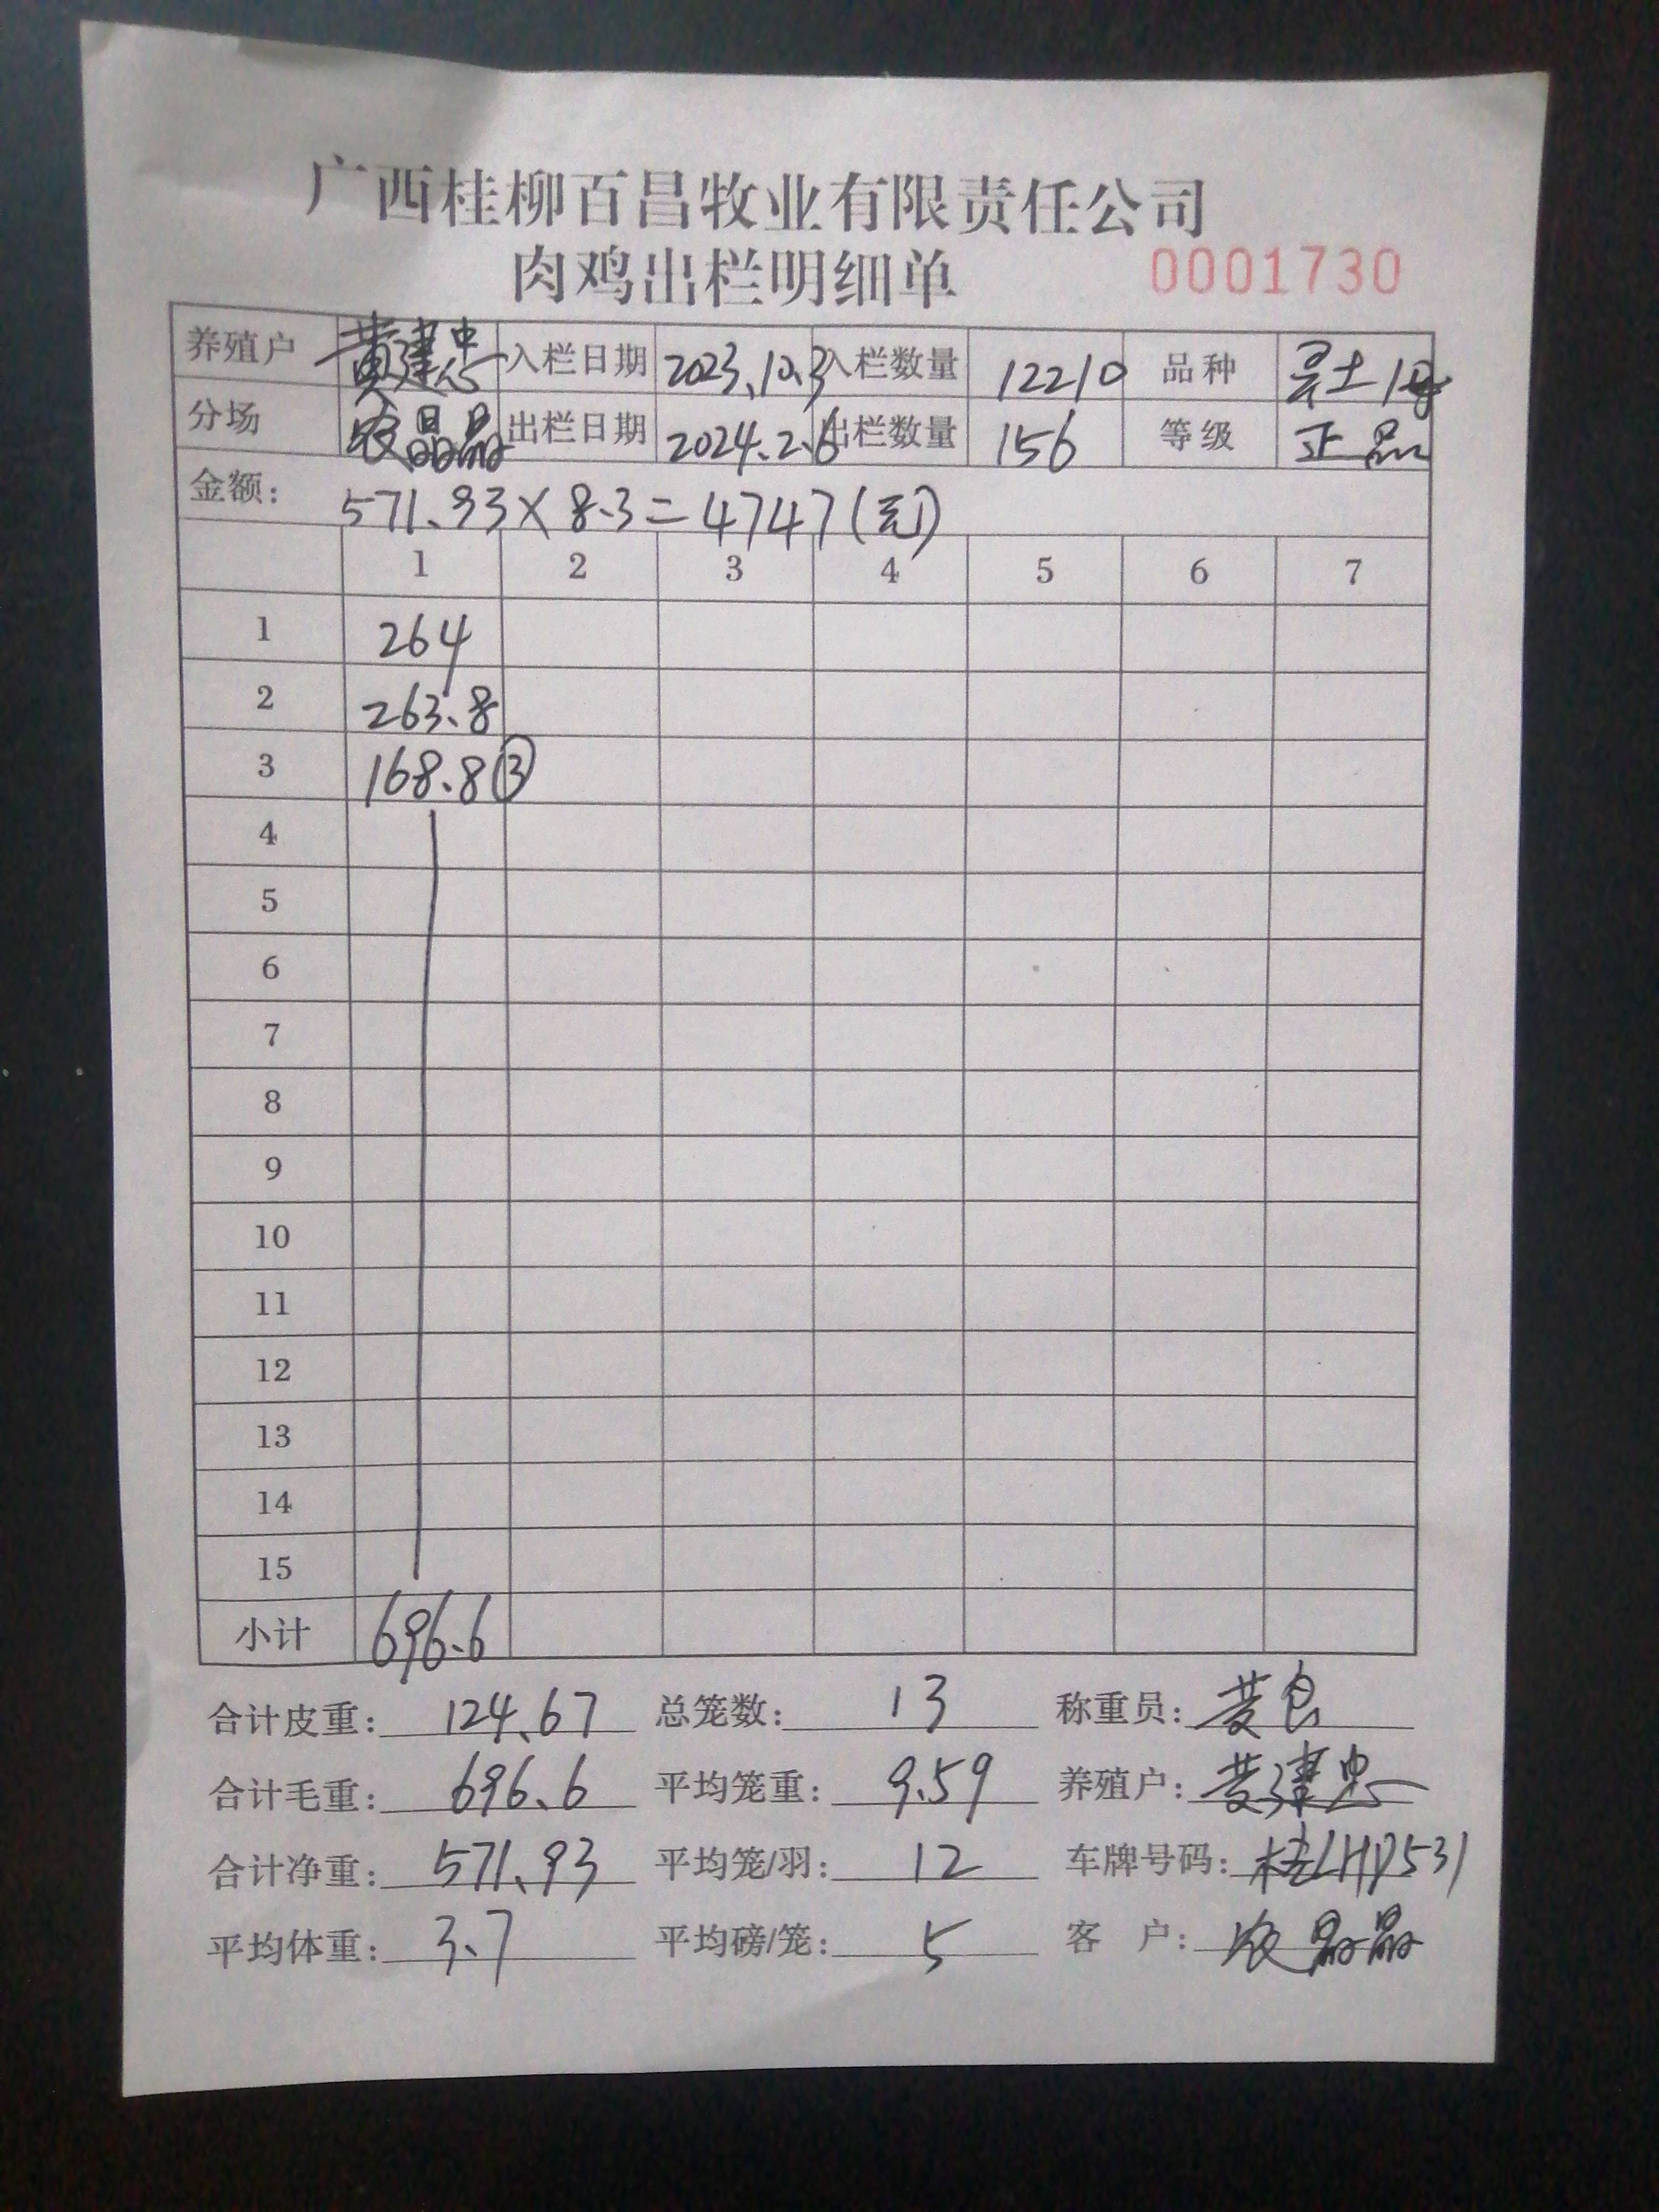 广西桂柳百昌牧业有限责任公司
肉鸡出栏明细单 0001730
养殖户 黄建忠 入栏日期 2023.10.3 入栏数量 12210 品种 灵土1号
分场 农晶晶 出栏日期 2024.2.6 出栏数量 156 等级 正品
金额: 571.93×8.3=4747(元)
1 2 3 4 5 6 7
1 264
2 263.8
3 168.8③
4
5
6
7
8
9
10
11
12
13
14
15
小计 696.6
合计皮重: 124.67 总笼数: 13 称重员:
合计毛重: 696.6 平均笼重: 9.59 养殖户: 黄建忠
合计净重: 571.93 平均笼/羽: 12 车牌号码:
平均体重: 3.7 平均磅/笼: 5 客 户: 农晶晶